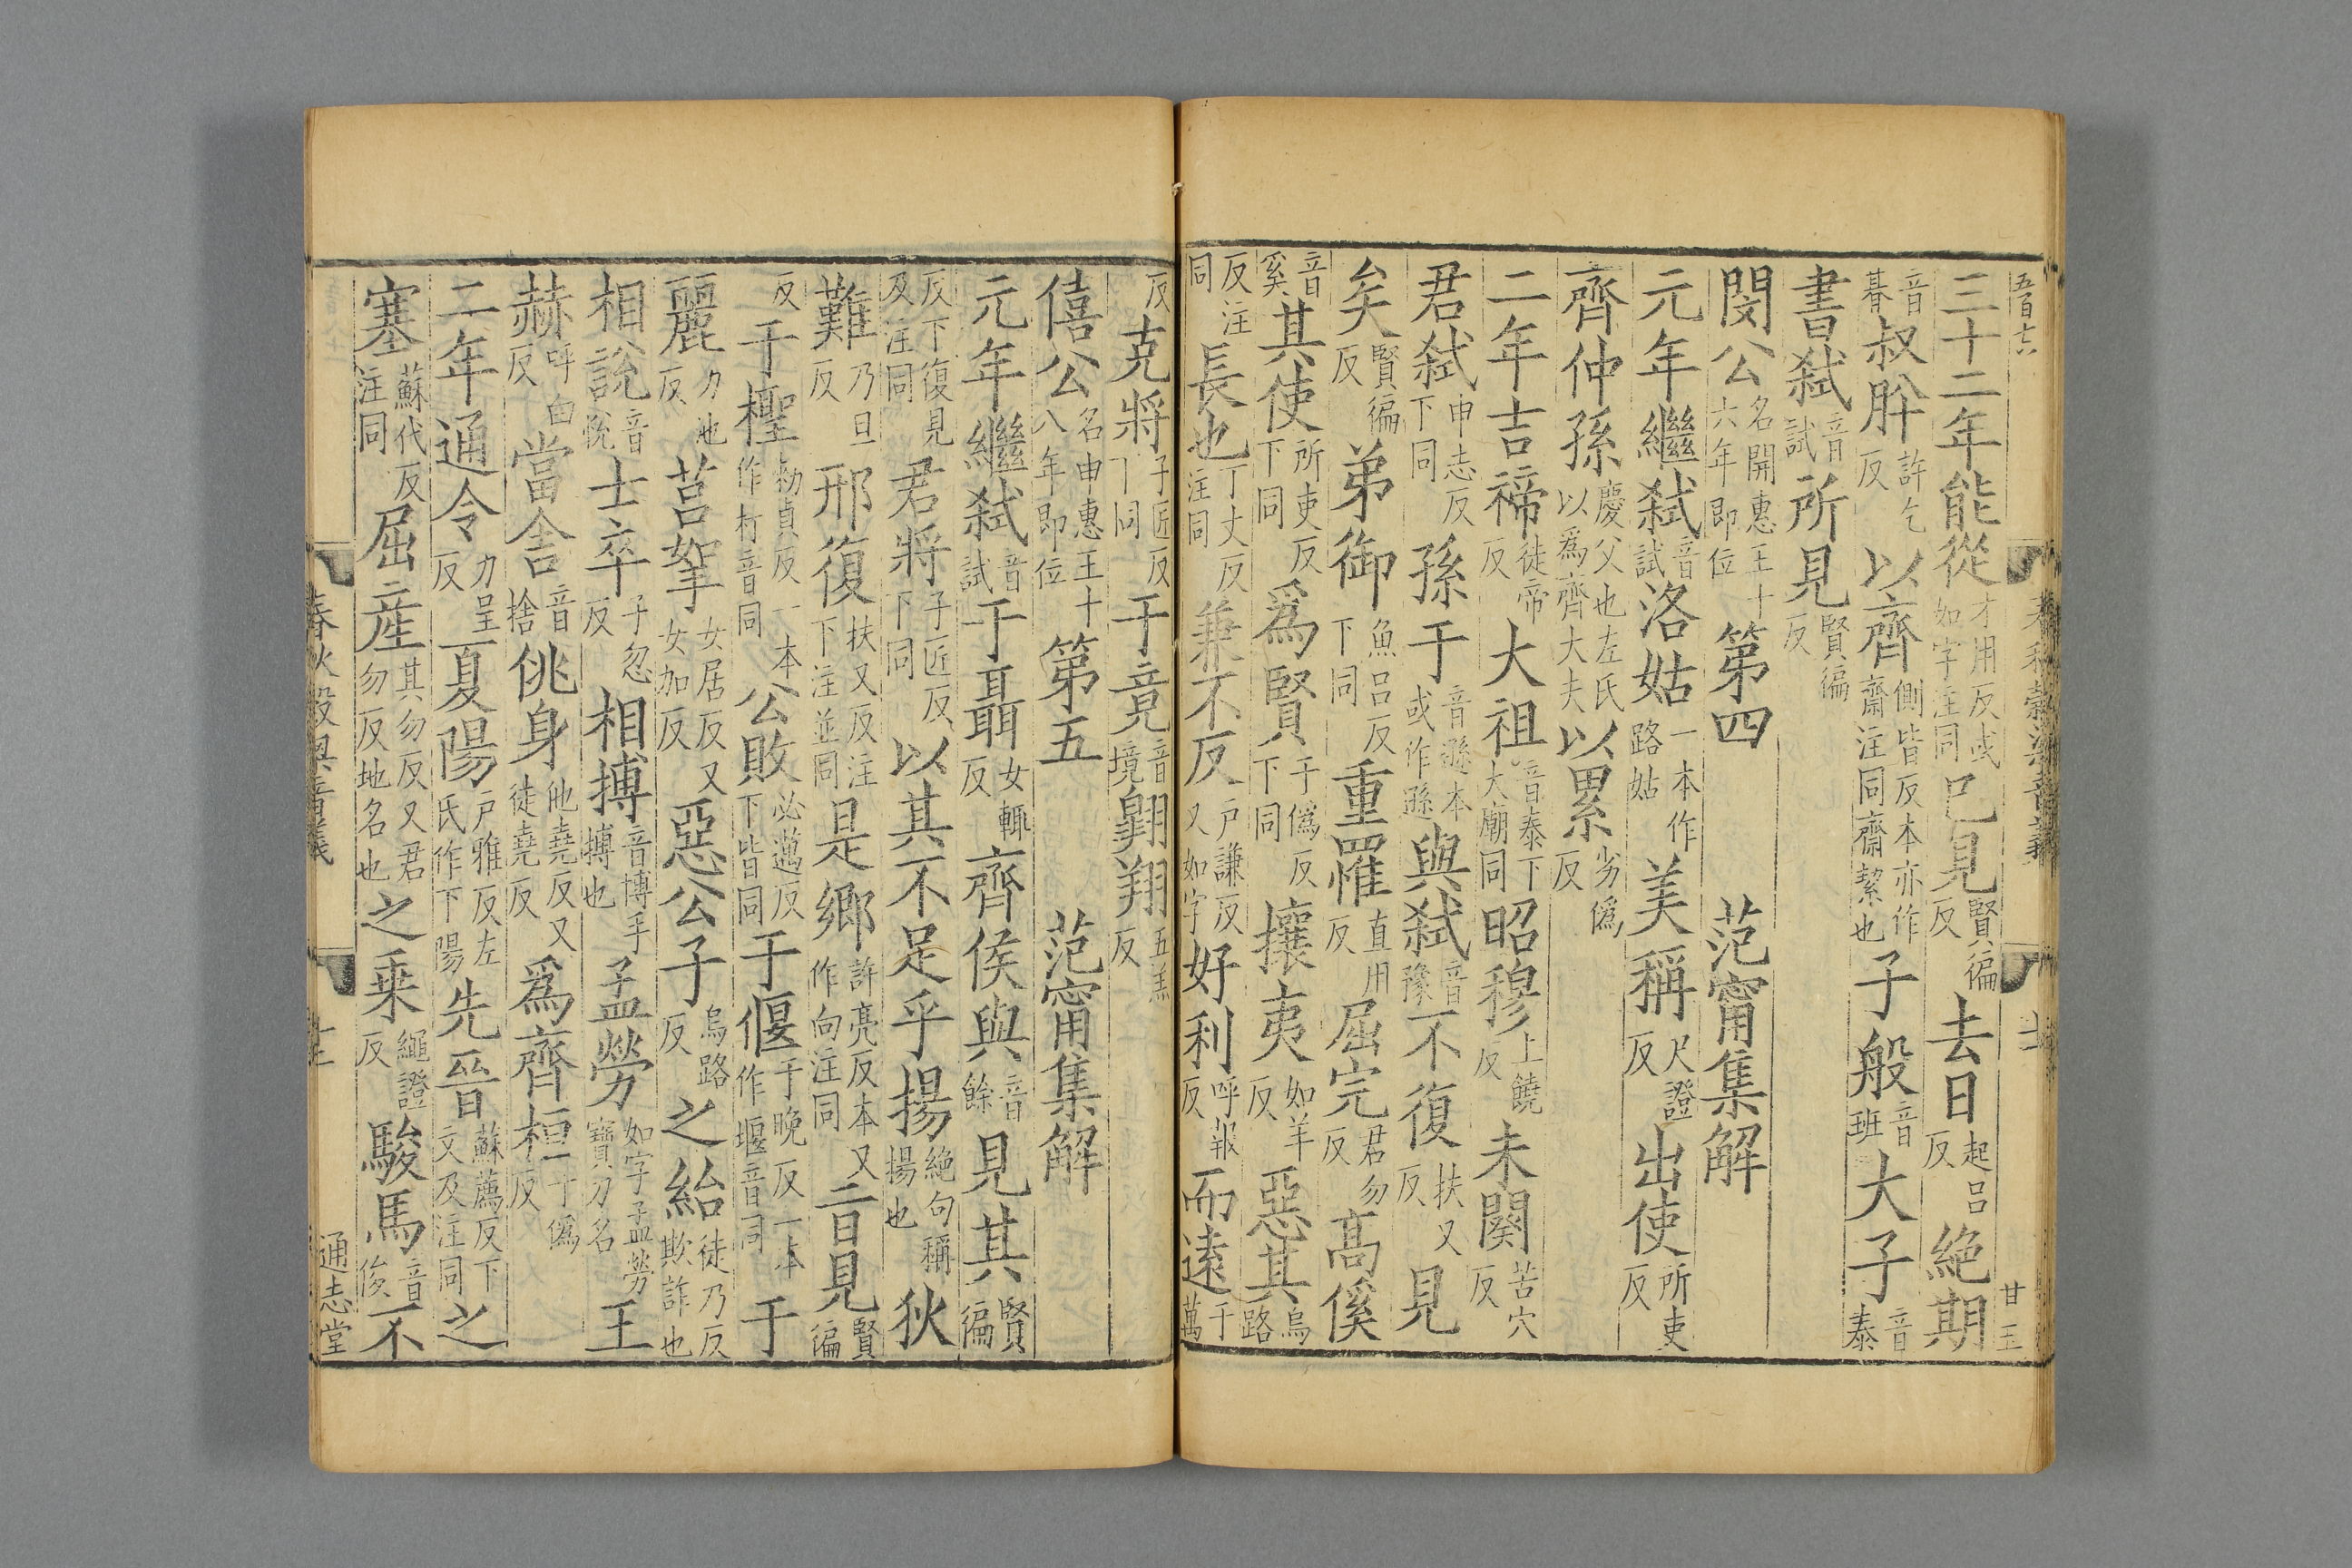 三十二年能從才用反或如字注同已見賢徧反去日起呂反絶期
音朞叔肸許乞反以齊側皆反本亦作齋注同齋絜也子般音班大子音泰
書弑音試所見賢徧反
閔公名開惠王十六年即位第四 范甯集解
元年繼弑音試洛姑一本作路姑美稱尺證反出使所吏反
齊仲孫慶父也左氏以爲齊大夫以累劣僞反
二年吉禘徒帝反大祖音泰下大廟同昭穆上饒反未闋苦穴反
君弑申志反下同孫于音遜本或作遜與弑音豫不復扶又反見
矣賢徧反弟御魚呂反下同重罹直用反屈完君勿反髙傒
音奚其使所吏反下同爲賢于僞反下同攘夷如羊反惡其烏路
反注同長也丁丈反注同兼不反戶謙反又如字好利呼報反而遠于萬
反克將子匠反下同于竟音境翶翔五羔反
僖公名申惠王十八年即位第五 范甯集解
元年繼弑音試于聶女輒反齊侯與音餘見其賢徧
反下復見及注同君將子匠反下同以其不足乎揚絶句稱揚也狄
難乃旦反邢復扶又反注下注並同是鄉許亮反本又作向注同一見賢徧
反于檉勑貞反一本作朾音同公敗必邁反下皆同于偃于晚反一本作堰音同于
麗力池反莒挐女居反又女加反惡公子烏路反之紿徒乃反欺詐也
相說音悅士卒子忽反相搏音博手搏也孟勞如字孟勞寶刀名王
赫呼白反當舍音捨佻身他堯反又徒堯反爲齊桓于僞反
二年通令力呈反夏陽戶雅反左氏作下陽先晉蘇薦反下文及注同之
塞蘇代反注同屈産其勿反又君勿反地名也之乗繩證反駿馬音俊不
春秋穀梁音義
通志堂